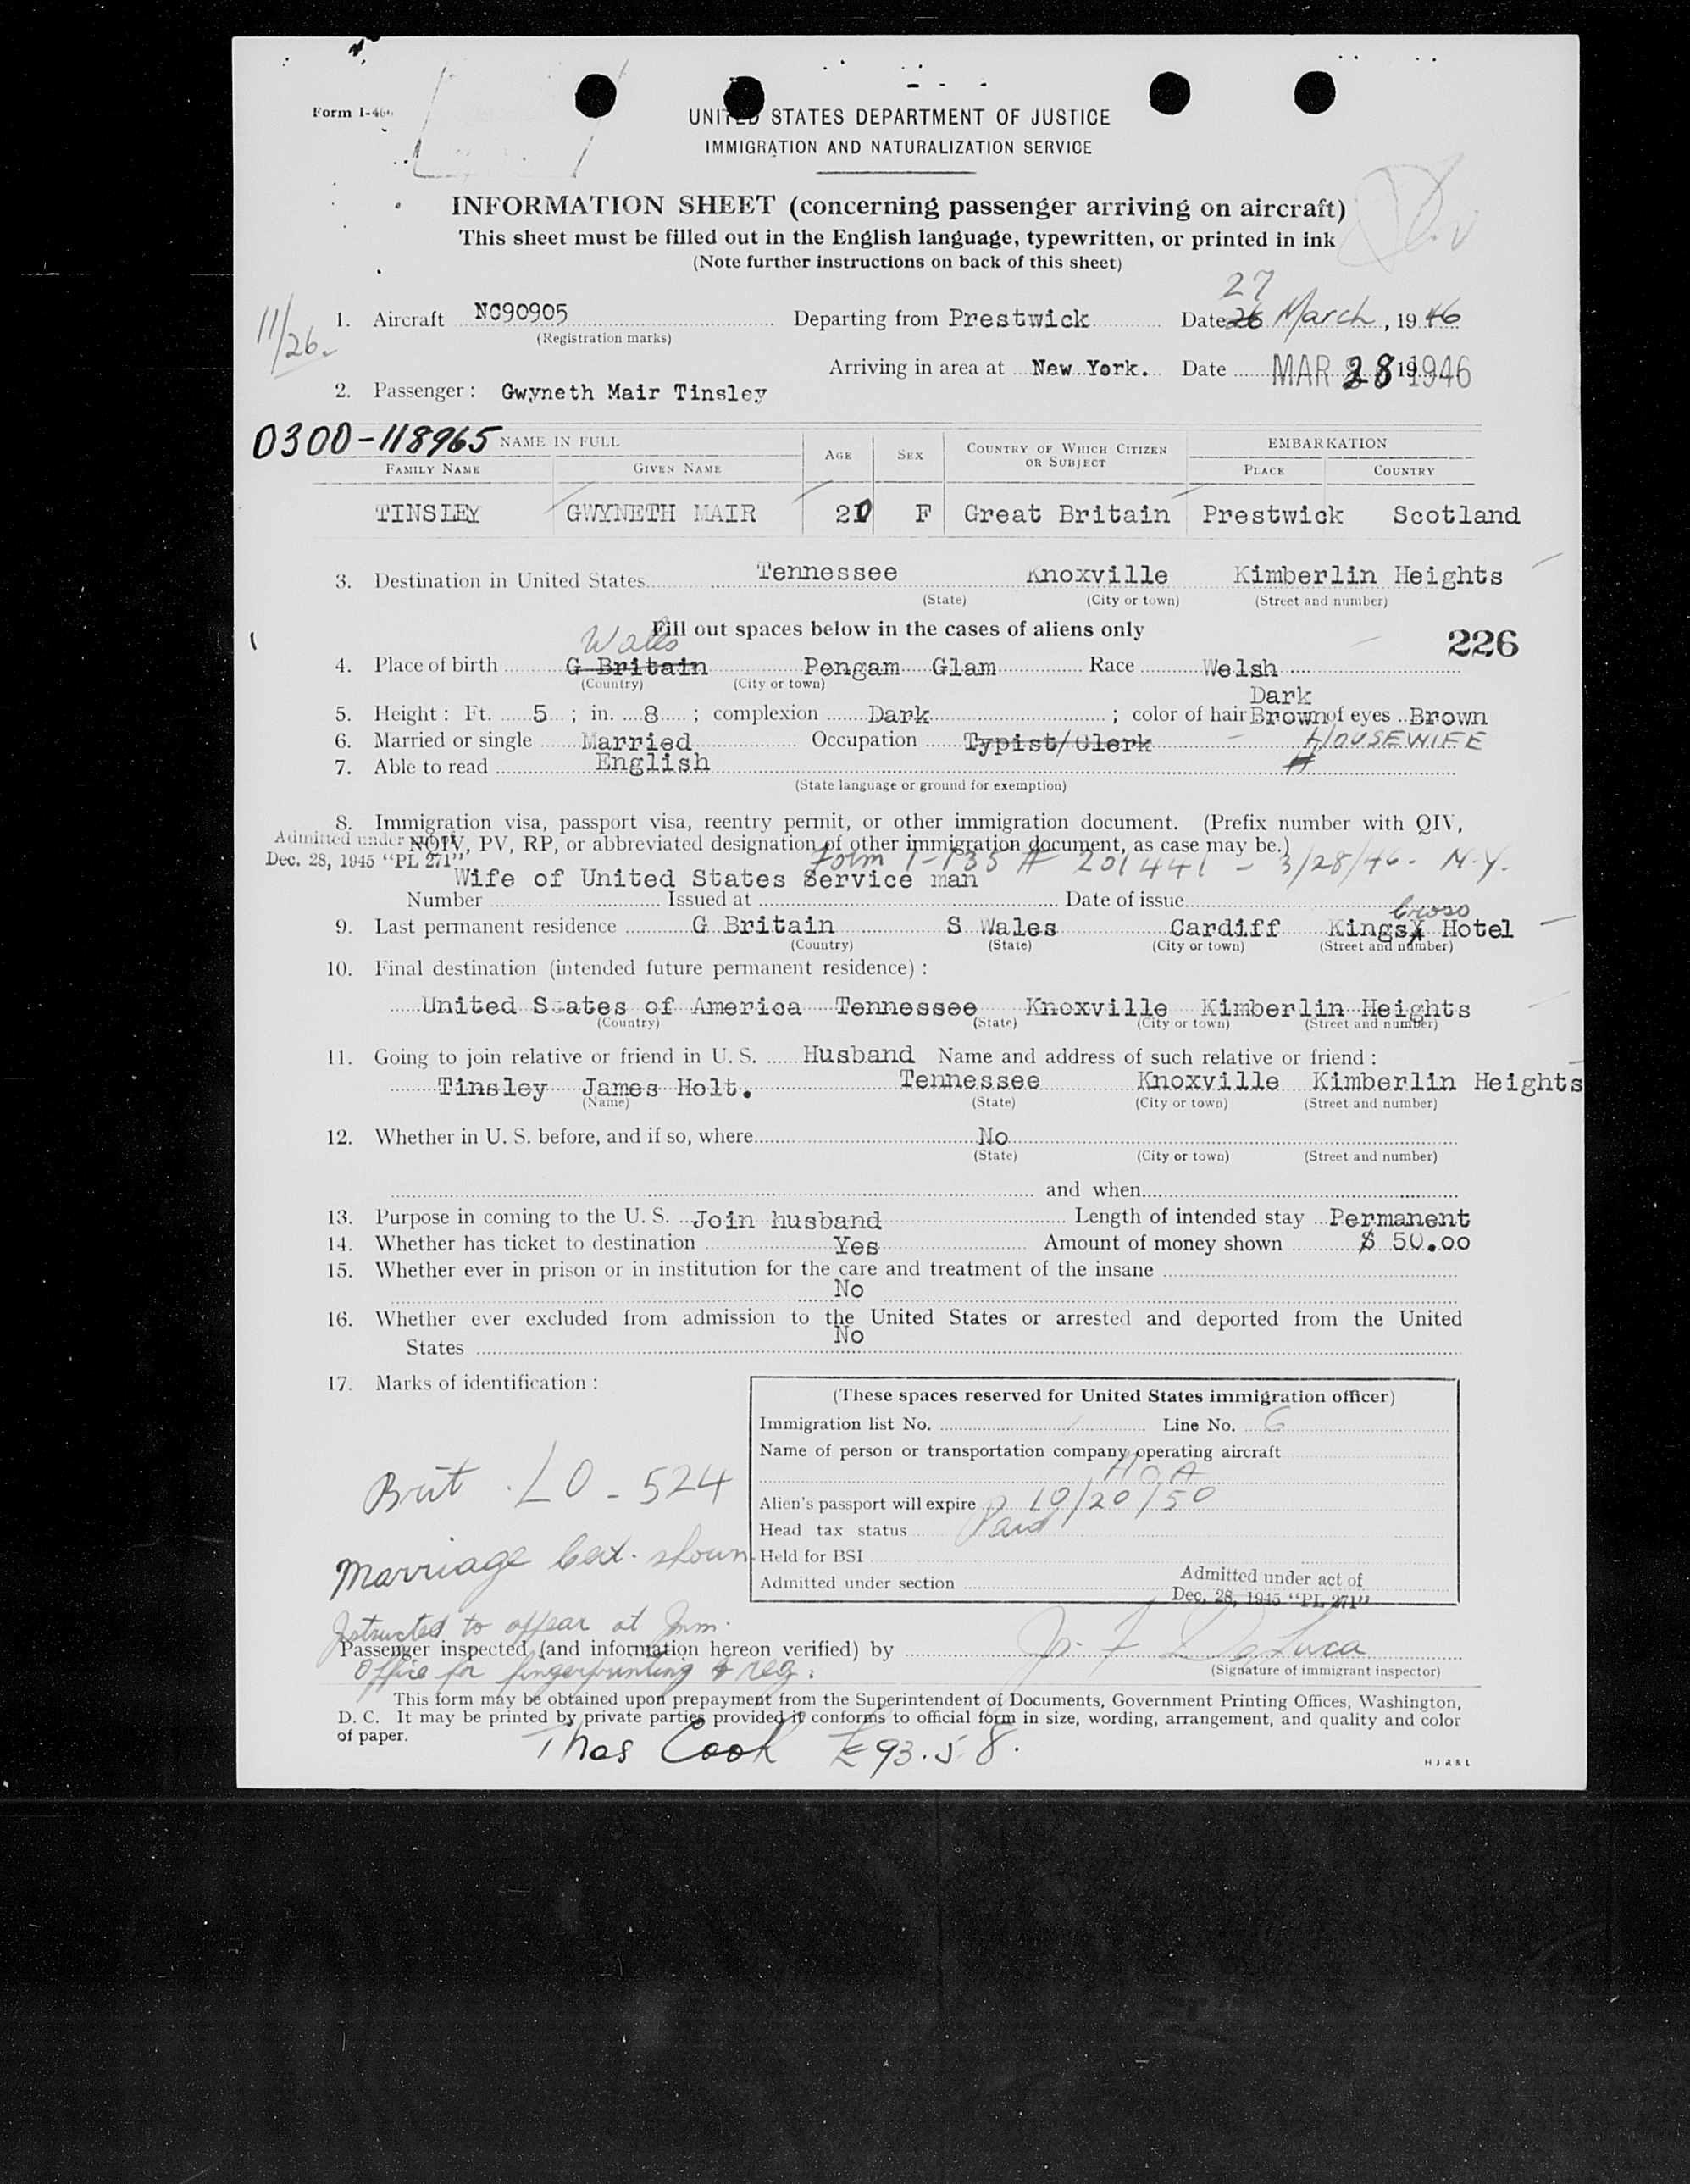 Form I-466
UNITED STATES DEPARTMENT OF JUSTICE
IMMIGRATION AND NATURALIZATION SERVICE
INFORMATION SHEET (concerning passenger arriving on aircraft)
This sheet must be filled out in the English language, typewritten, or printed in ink
(Note further instructions on back of this sheet)
27
11/26.
1. Aircraft NC90905 Departing from Prestwick Date 26 March, 1946
(Registration marks)
Arriving in area at New York. Date MAR 28 1946 19
2. Passenger: Gwyneth Mair Tinsley
0300-118965 NAME IN FULL AGE SEX COUNTRY OF WHICH CITIZEN OR SUBJECT EMBARKATION
FAMILY NAME GIVEN NAME PLACE COUNTRY
TINSLEY GWYNETH MAIR 20 F Great Britain Prestwick Scotland
3. Destination in United States Tennessee Knoxville Kimberlin Heights
(State) (City or town) (Street and number)
Fill out spaces below in the cases of aliens only
Wales 226
4. Place of birth G Britain Pengam Glam Race Welsh
(Country) (City or town)
Dark
5. Height: Ft. 5; in. 8; complexion Dark; color of hair Brown of eyes Brown
6. Married or single Married Occupation Typist/Clerk HOUSEWIFE
7. Able to read English
(State language or ground for exemption)
8. Immigration visa, passport visa, reentry permit, or other immigration document. (Prefix number with QIV,
Admitted under NQIV, PV, RP, or abbreviated designation of other immigration document, as case may be.)
Dec. 28, 1945 "PL 271" Form I-135 # 201441 - 3/28/46- N.Y.
Wife of United States Service man
Number Issued at Date of issue
Cross
9. Last permanent residence G Britain S Wales Cardiff KingsX Hotel
(Country) (State) (City or town) (Street and number)
10. Final destination (intended future permanent residence):
United States of America Tennessee Knoxville Kimberlin Heights
(Country) (State) (City or town) (Street and number)
11. Going to join relative or friend in U. S. Husband Name and address of such relative or friend:
Tinsley James Holt. Tennessee Knoxville Kimberlin Heights
(Name) (State) (City or town) (Street and number)
12. Whether in U. S. before, and if so, where No
(State) (City or town) (Street and number)
and when
13. Purpose in coming to the U. S. Join husband Length of intended stay Permanent
14. Whether has ticket to destination Yes Amount of money shown $ 50.00
15. Whether ever in prison or in institution for the care and treatment of the insane
No
16. Whether ever excluded from admission to the United States or arrested and deported from the United
States No
17. Marks of identification:
(These spaces reserved for United States immigration officer)
Immigration list No. / Line No. 6
Name of person or transportation company operating aircraft
AOA
Brit. LO-524
Alien's passport will expire 10/20/50
Head tax status Paid
Marriage Cert. shown
Held for BSI
Admitted under section Admitted under act of
Dec. 28, 1945 "PL 271"
Instructed to appear at Imm.
Passenger inspected (and information hereon verified) by DeLuca
Office for fingerprinting & reg.
(Signature of immigrant inspector)
This form may be obtained upon prepayment from the Superintendent of Documents, Government Printing Offices, Washington,
D. C. It may be printed by private parties provided it conforms to official form in size, wording, arrangement, and quality and color
of paper.
Thos Cook £93.5.8.